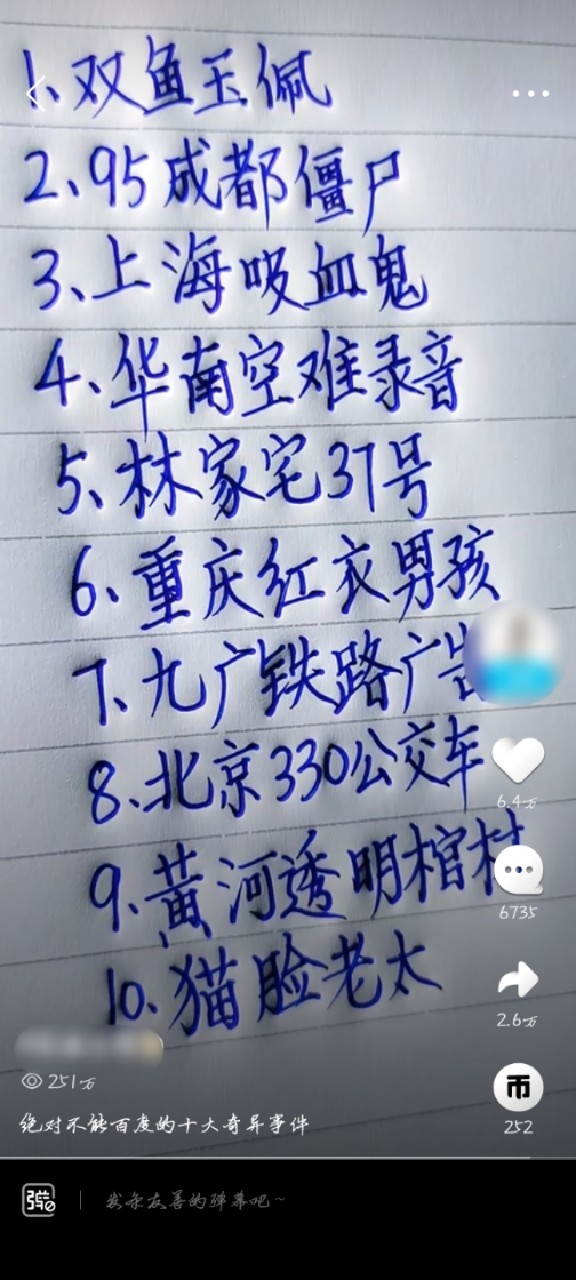 1、双鱼玉佩
2、95成都僵尸
3、上海吸血鬼
4、华南空难录音
5、林家宅37号
6、重庆红衣男孩
7、九广铁路广告
8、北京330公交车
6.4万
9、黄河透明棺材
6735
10、猫脸老太
2.6万
251万
币
252
绝对不能百度的十大奇异事件
弹
发条友善的弹幕吧~